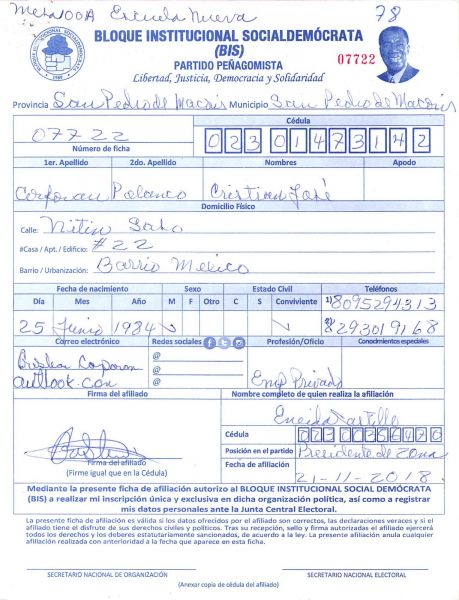 Mesa 00A Escuela Nueva 78
BLOQUE INSTITUCIONAL SOCIALDEMÓCRATA
(BIS)
PARTIDO PEÑAGOMISTA
Libertad, Justicia, Democracia y Solidaridad
07722
Provincia San Pedro de Macoris Municipio San Pedro de Macoris
07722
Número de ficha
Cédula
023 0147314 2
1er. Apellido 2do. Apellido Nombres Apodo
Corporan Polanco Cristian José
Domicilio Físico
Calle: Nitin
#Casa / Apt. / Edificio: #22
Barrio / Urbanización: Barrio Mexico
Fecha de nacimiento Sexo Estado Civil Teléfonos
Día Mes Año M F Otro C S Conviviente 1) 8095294313
25 Junio 1984 ✓ ✓ 2) 8293019168
Correo electrónico Redes sociales Profesión/Oficio Conocimientos especiales
outlook.con
@
@
@
Emp Privado
Firma del afiliado Nombre completo de quien realiza la afiliación
Eneida Castillo
Cédula 023
Posición en el partido Presidente de Zona
Fecha de afiliación 21-11-2018
Firma del afiliado
(Firme igual que en la Cédula)
Mediante la presente ficha de afiliación autorizo al BLOQUE INSTITUCIONAL SOCIAL DEMÓCRATA
(BIS) a realizar mi inscripción única y exclusiva en dicha organización política, así como a registrar
mis datos personales ante la Junta Central Electoral.
La presente ficha de afiliación es válida si los datos ofrecidos por el afiliado son correctos, las declaraciones veraces y si el
afiliado tiene el disfrute de sus derechos civiles y políticos. Tras su recepción, sello y firma autorizados el afiliado ejercerá
todos los derechos y los deberes estatutariamente sancionados, de acuerdo a la ley. La presente afiliación anula cualquier
afiliación realizada con anterioridad a la fecha que aparece en esta ficha.
SECRETARIO NACIONAL DE ORGANIZACIÓN SECRETARIO NACIONAL ELECTORAL
(Anexar copia de cédula del afiliado)